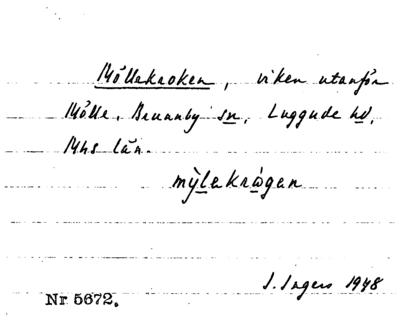 Möllekroken, viken utanför
Mölle, Brunnby sn, Luggude hd,
Mhs län.
mỳlekrògen
I. Ingers 1948
Nr 5672.